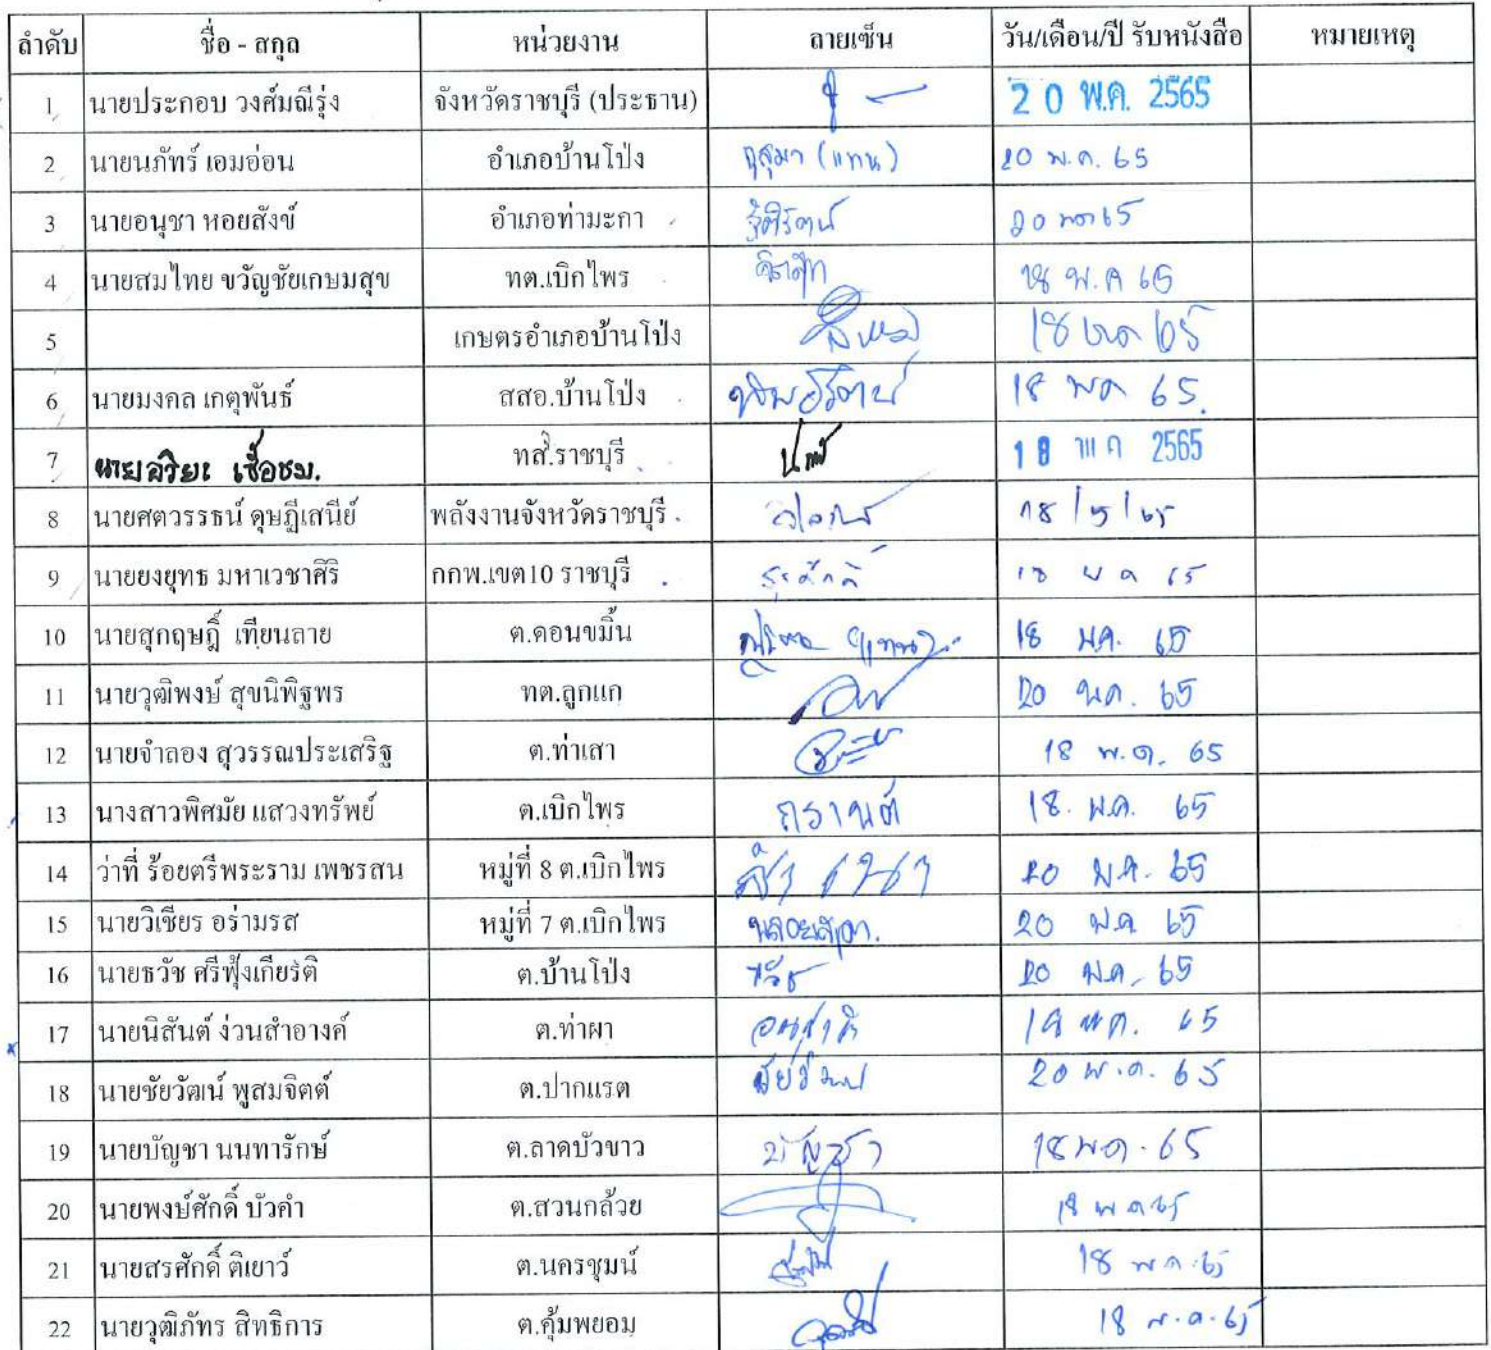 ลำดับ ชื่อ - สกุล หน่วยงาน ลายเซ็น วัน/เดือน/ปี รับหนังสือ หมายเหตุ
1 นายประกอบ วงศ์มณีรุ่ง จังหวัดราชบุรี (ประธาน) 20 พ.ค. 2565
2 นายนภัทร์ เอมอ่อน อำเภอบ้านโป่ง กุสุมา (แทน) 20 พ.ค. 65
3 นายอนุชา หอยสังข์ อำเภอท่ามะกา 20 พค 65
4 นายสมไทย ขวัญชัยเกษมสุข ทต.เบิกไพร 18 พ.ค 65
5 เกษตรอำเภอบ้านโป่ง 18 พค 65
6 นายมงคล เกตุพันธ์ สสอ.บ้านโป่ง 18 พค 65
7 นายอริยะ เชื้อชม. ทส.ราชบุรี 2565
8 นายศตวรรธน์ ดุษฎีเสนีย์ พลังงานจังหวัดราชบุรี 18/5/65
9 นายยงยุทธ มหาเวชาศิริ กกพ.เขต10 ราชบุรี 18 พ ค 65
10 นายสุกฤษฎิ์ เทียนลาย ต.ดอนขมิ้น (แทน) 18 พ.ค. 65
11 นายวุฒิพงษ์ สุขนิพิฐพร ทต.ลูกแก 20 พ.ค. 65
12 นายจำลอง สุวรรณประเสริฐ ต.ท่าเสา 18 พ.ค. 65
13 นางสาวพิศมัย แสวงทรัพย์ ต.เบิกไพร 18. พ.ค. 65
14 ว่าที่ ร้อยตรีพระราม เพชรสน หมู่ที่ 8 ต.เบิกไพร 20 พ.ค. 65
15 นายวิเชียร อร่ามรส หมู่ที่ 7 ต.เบิกไพร 20 พ.ค 65
16 นายธวัช ศรีฟุ้งเกียรติ ต.บ้านโป่ง ธวัช 20 พ.ค. 65
17 นายนิสันต์ ง่วนสำอางค์ ต.ท่าผา พค. 65
18 นายชัยวัฒน์ พูสมจิตต์ ต.ปากแรต ชัยวัฒน์ 20 พ.ค. 65
19 นายบัญชา นนทารักษ์ ต.ลาดบัวขาว บัญชา 18 พค. 65
20 นายพงษ์ศักดิ์ บัวคำ ต.สวนกล้วย 18 พ ค 65
21 นายสรศักดิ์ ติเยาว์ ต.นครชุมน์ 18 พ.ค. 65
22 นายวุฒิภัทร สิทธิการ ต.คุ้มพยอม 18 พ.ค. 65